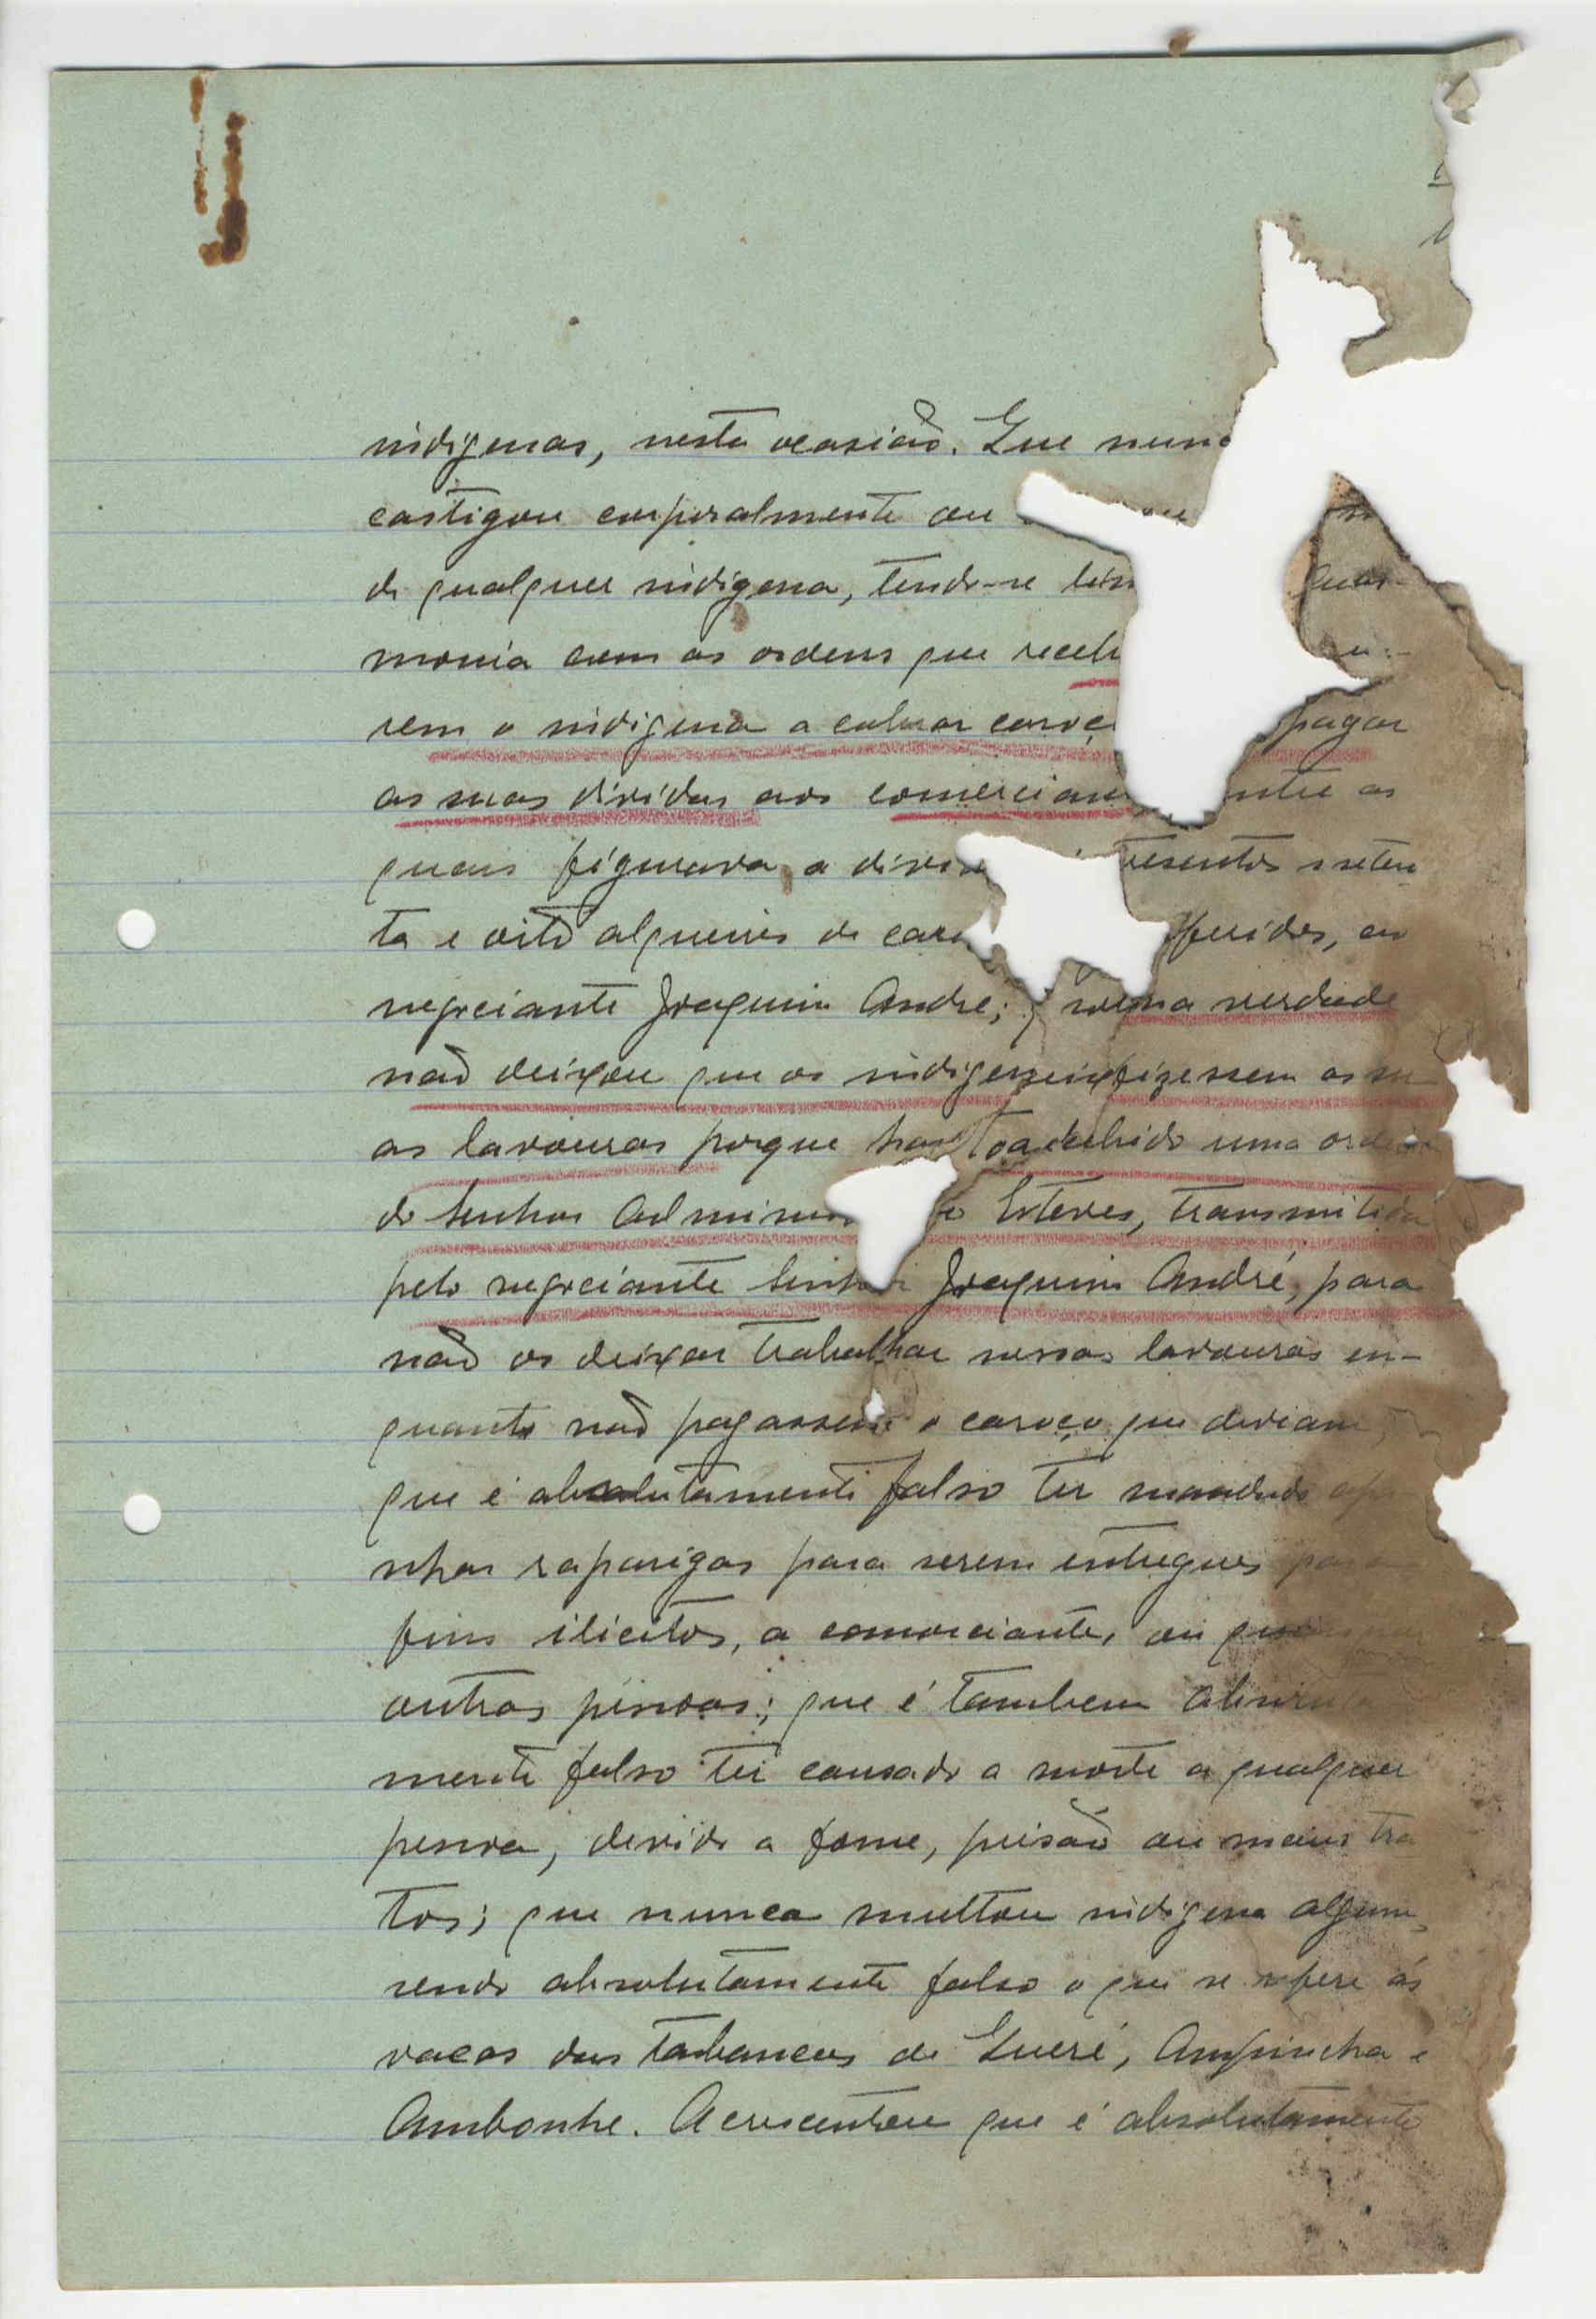 indigenas, nesta ocasião. Que nun
castigou corporalmente ou
de qualquer indigena, tendo-se
monia com as ordens que receb
rem o indigena a cobrar caroç pagar
as suas dividas aos comercian ntre as
quais figurava a divi resentos e seten
ta e oito alqueires de caro feridos, ao
negociante Joaquim André; na verdade
não deixou que os indigenas fizessem as su
as lavouras porque recebido uma ordem
do Senhor Adminis Esteves, transmitida
pelo negociante Senhor Joaquim André, para
não os deixar trabalhar nessas lavouras en-
quanto não pagassem o caroço que deviam,
que é absolutamente falso ter mandado apa
nhar raparigas para serem entregues para
fins ilicitos, a comerciantes ou quaisquer
outras pessoas; que é tambem absoluta
mente falso ter causado a morte a qualquer
pessoa, devido a fome, prisão ou maus tra
tos; que nunca multou indigena algum,
sendo absolutamente falso o que se refere ás
vacas das tabancas de Gueré, Ampincha e
Ambonhe. Acrescentou que é absolutamente